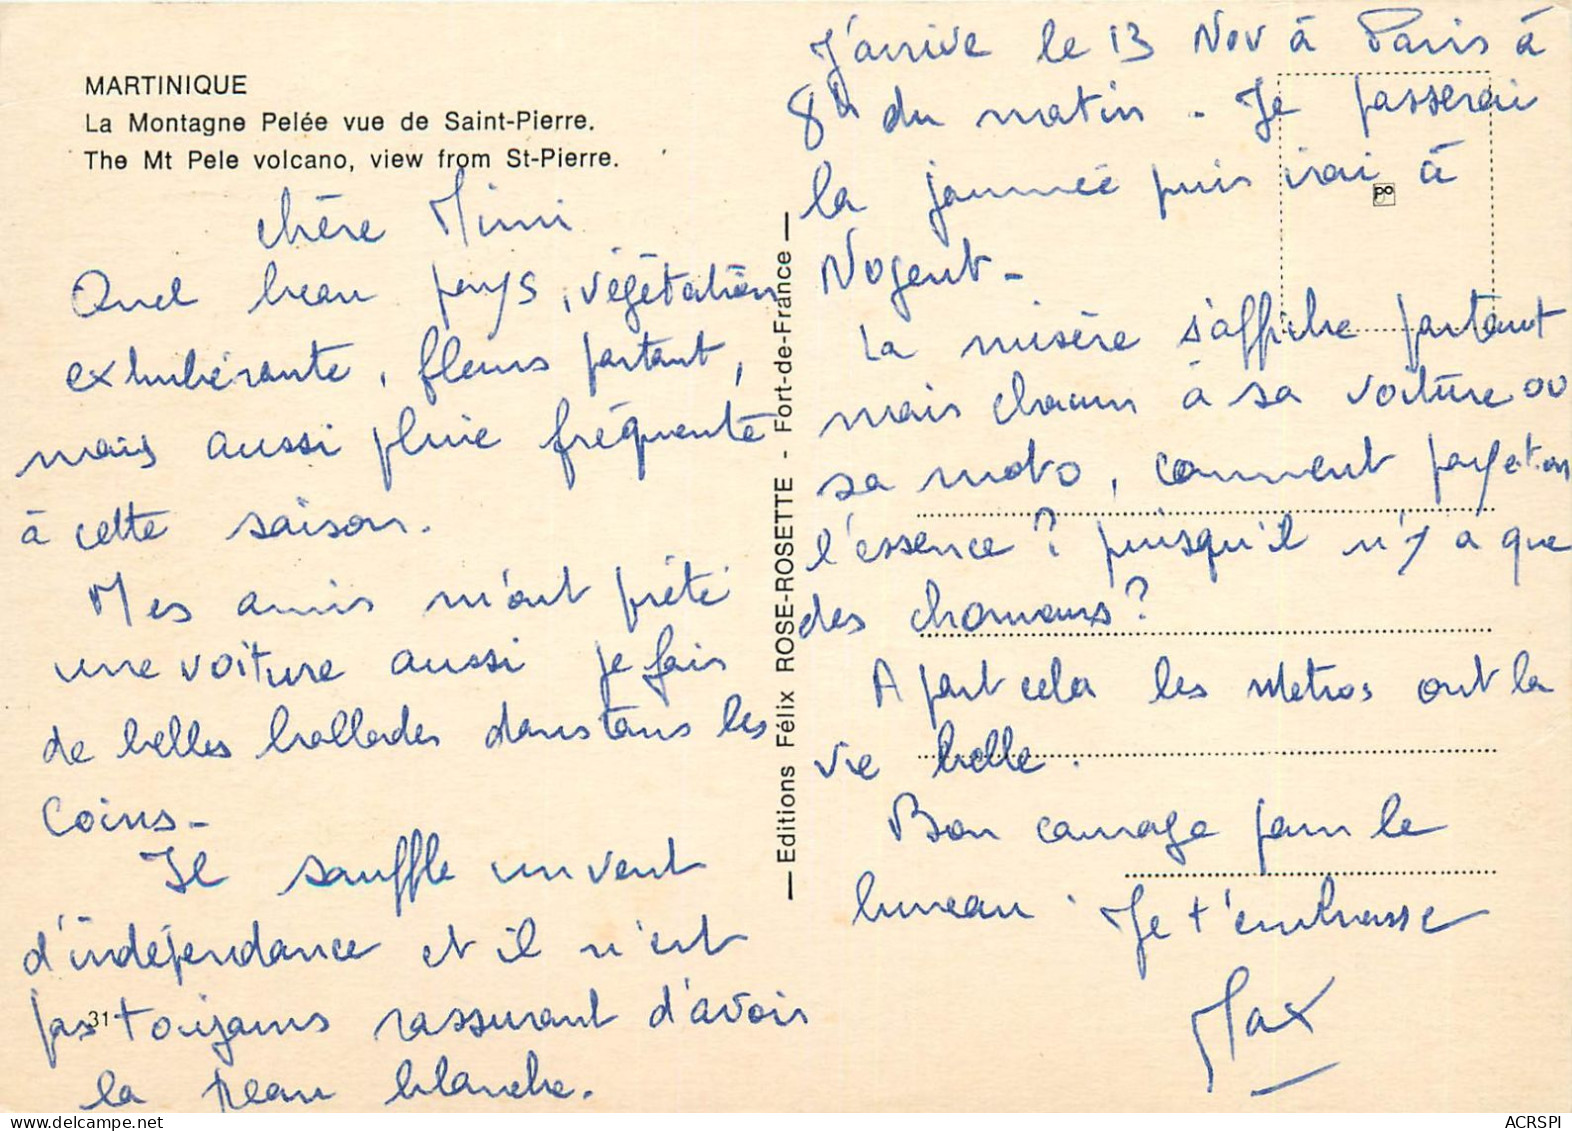 MARTINIQUE
La Montagne Pelée vue de Saint-Pierre.
The Mt Pele volcano, view from St-Pierre.
chère Mimi
Quel beau pays, végétation
exhubérante, fleurs partout,
mais aussi pluie fréquente
à cette saison.
Mes amis m'ont prêté
une voiture aussi je fais
de belles ballades dans tous les
coins -
Il souffle un vent
d'indépendance et il n'est
pas toujours rassurant d'avoir
la peau blanche.
31
— Editions Félix ROSE-ROSETTE - Fort-de-France —
J'arrive le 13 Nov à Paris à
8h du matin - Je passerai
la journée puis irai à
Nogent -
La misère s'affiche partout
mais chacun à sa voiture ou
sa moto, comment paye-t-on
l'essence ? puisqu'il n'y a que
des chomeurs ?
A part cela les Métros ont la
vie belle.
Bon courage pour le
bureau. Je t'embrasse
Max
delcampe.net
ACRSPI